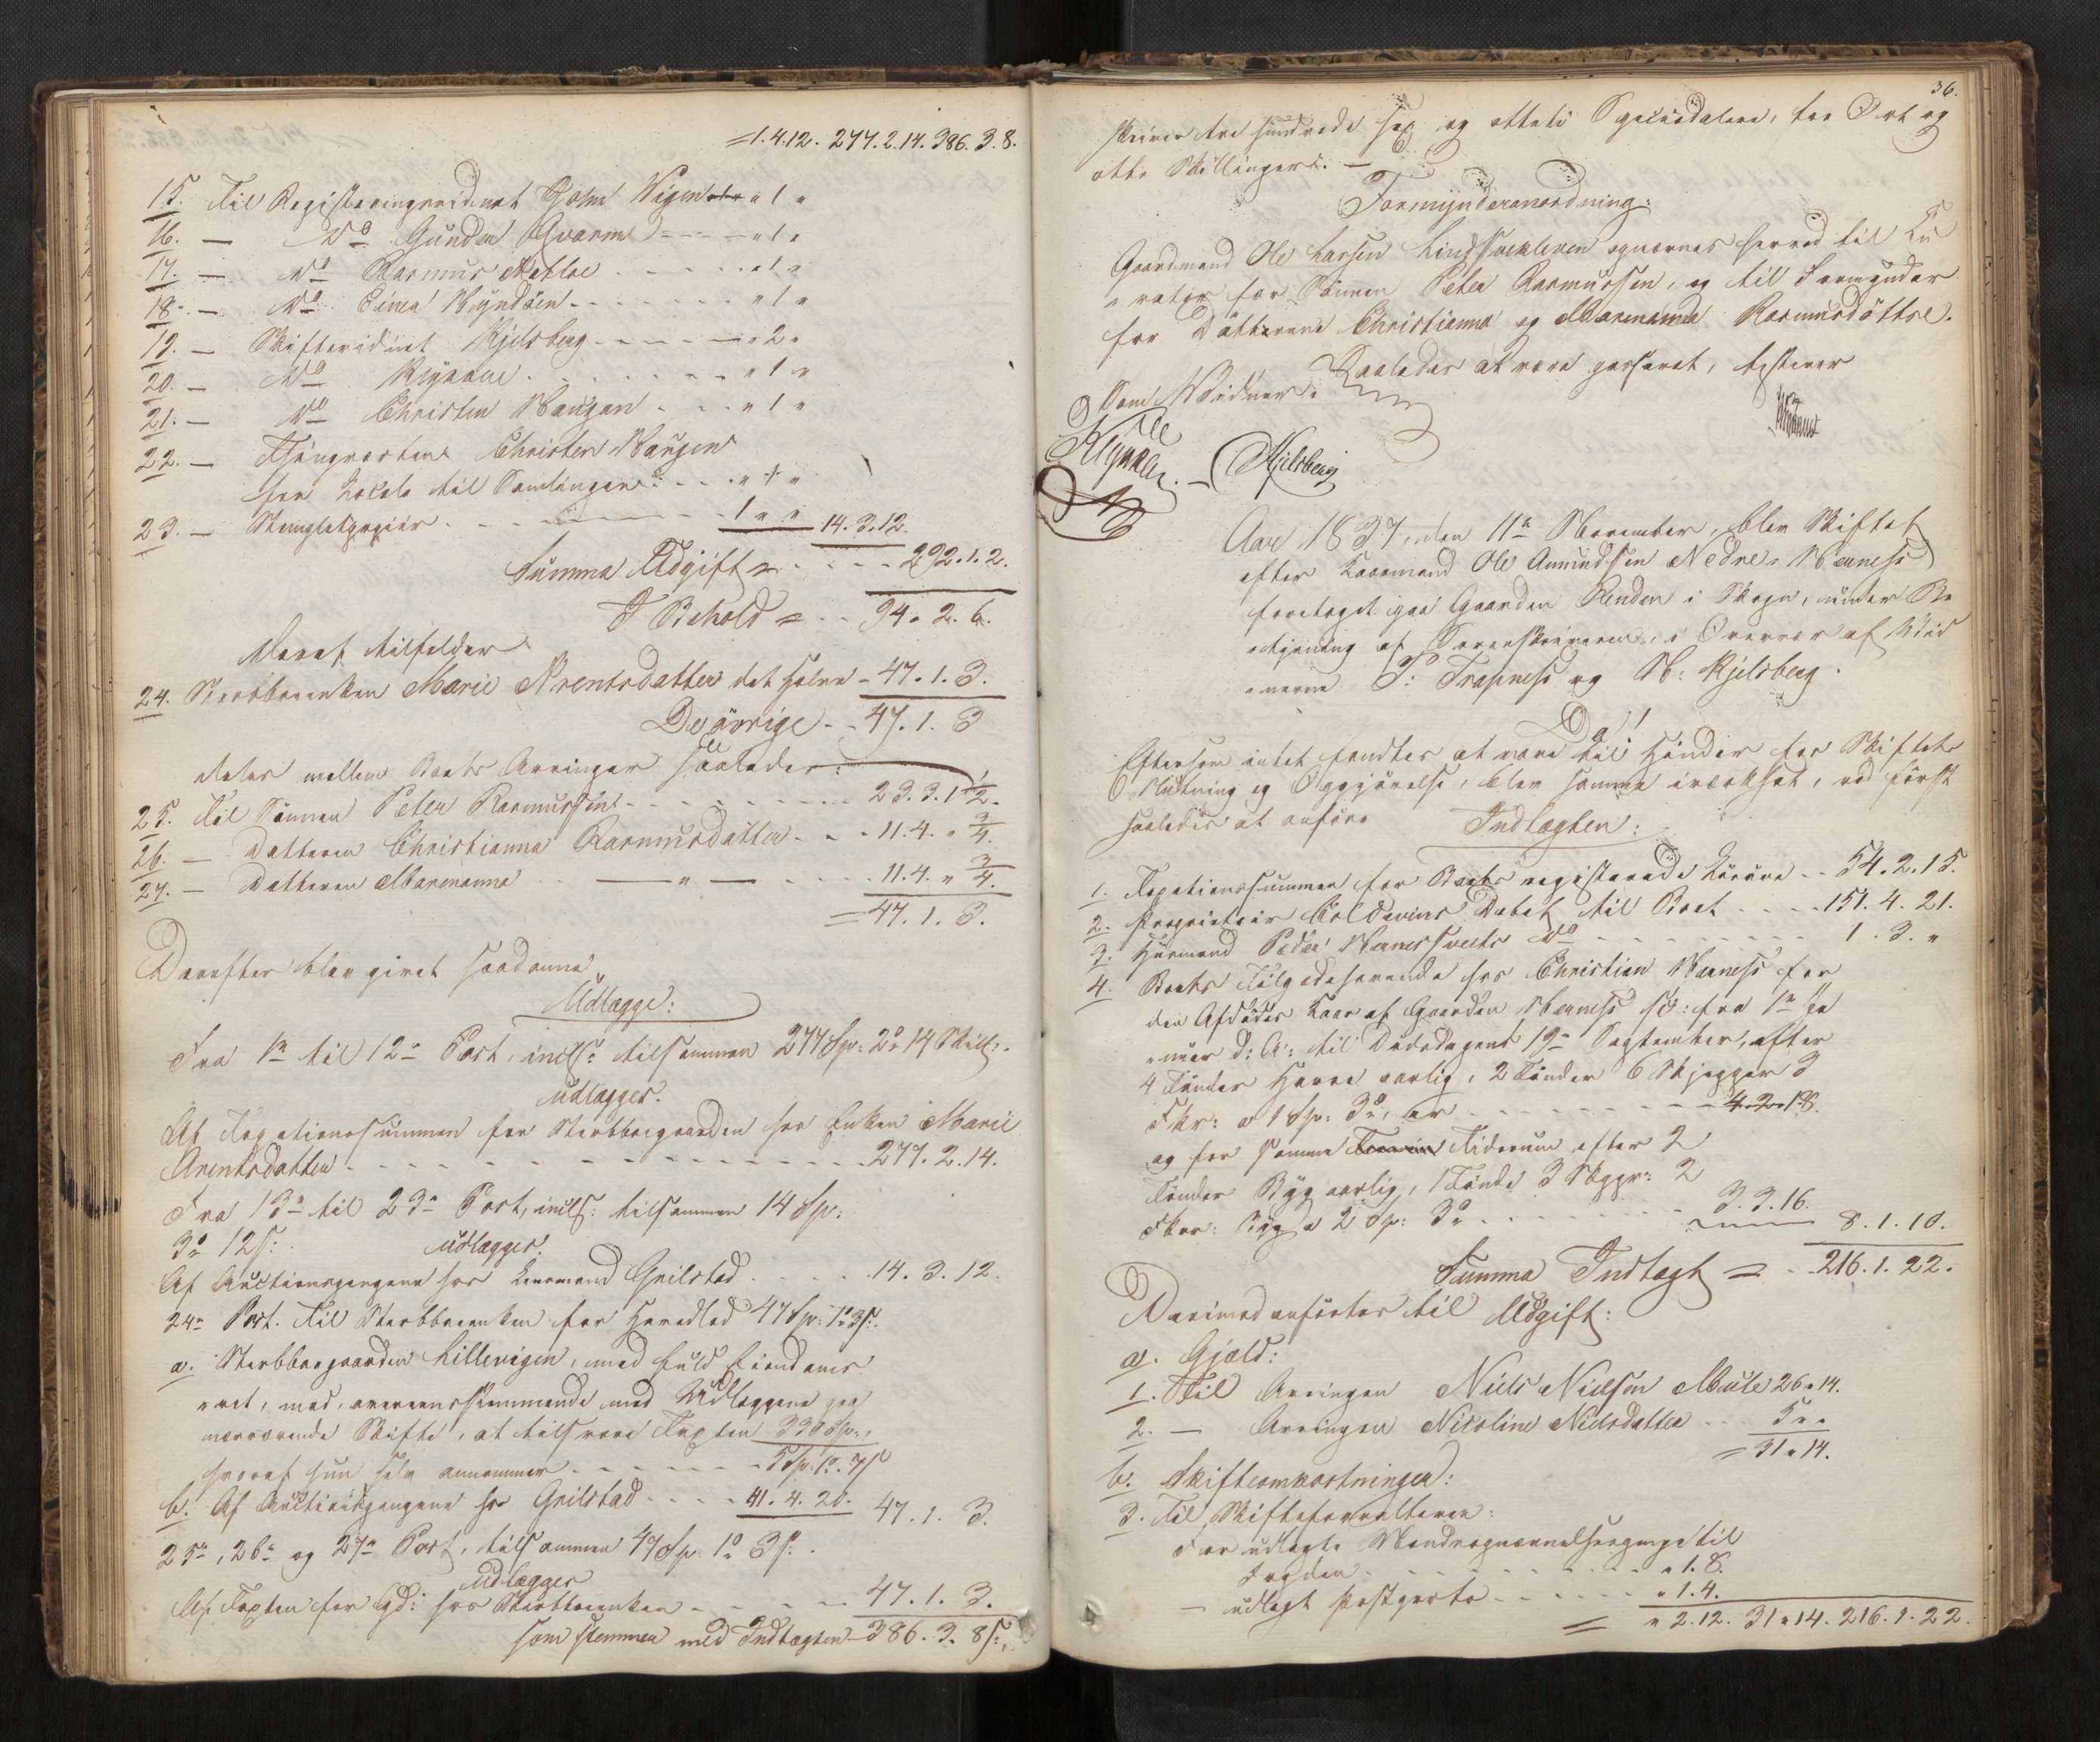 = 1. 4. 12. 277. 2. 14. 386. 3. 8.
15. Til Registeringsvidnet John Wigen " 1 "
16. — Do Gunder Qvarme " 1 "
17. — Do Rasmus " 1 "
18. — Do Einer " 1 "
19. — Skiftevidnet Kjelsberg " 2 "
20. — Do " 1 "
21. — Do Christen Haugan " 1 "
22. — Christen Haugen
for Locale til Samlingen " 1 "
23. — Stempletpapiir 1 " " 14. 3. 12.
Summa Udgift = 292. 1. 2.
I Behold = 94. 2. 6.
deraf tilfalder
24. Sterbboenken Marie Arentsdatter det halve 47. 1. 3.
De övrige 47. 1. 3
deles mellem Boets Arvinger saaledes:
25. Til Sönnen Peter Rasmussen 23. 3. 1 1/2.
26. — Datteren Christianna Rasmusdatter 11. 4. " 3/4.
27. — Datteren Marenanna — " — 11. 4. " 3/4.
= 47. 1. 3.
Derefter blev givet saadanne
Udlægge:
Fra 1n til 12n Post, incl: tilsammen 277 Sp: 2o 14 Skill:
udlægges.
Af Taxationssummen for Sterbboegaarden hos Enken Marie
Arentsdatter 277. 2. 14.
Fra 13n til 23n Post, incl: tilsammen 14 Sp:
3o 12 s: udlægges.
Af Auctionspengene hos Lensmand Grilstad 14. 3. 12.
24n Post. Til Sterbboenken for Hovedlod 47 Sp: 1o 3 s:
a. Sterbboegaarden Lillevigen, med fuld Eiendoms
"ret, mod, overeensstemmende med Udlæggene paa
nærværende Skifte, at tilsvare Taxten 330 Sp:,
hvoraf hun selv annammer 5 Sp: 1o 7 s
b. Af Auctionspengene hos Grilstad 41. 4. 20. 47. 1. 3.
25n, 26n og 27n Post, tilsammen 47 Sp: 1o 3 s:
udlægges
Af Taxten for Gd: hos Sterbboenken 47. 1. 3.
som stemmer med Indtægten 386. 3. 8 s:,
36.
skriver tre hundrede sex og otteti Speciesdaler, tre Ort og
otte Skillinger. —
Formynderanordning:
Gaardmand Ole Larsen opnævnes herved til Cu
"rator for Sönnen Peter Rasmussen, og til Formynder
for Döttrene Christianna og Marenanna Rasmusdöttre.
Saaledes at være passeret, testerer
Som Vidner:
Kjelsberg
Aar 1837, den 11n November, blev Skiftet
efter Kaarmand Ole Amundsen Nedre-Werness
foretaget paa Gaarden Renden i Skogn, under Be
"tjening af Sorenskriveren, i Overvær af Vid
"nerne P: Trapness og N: Kjelsberg.
Da!
Eftersom intet fandtes at være til Hinder for Skiftets
Slutning og Opgjörelse, blev samme iværksat, ved först
saaledes at anföre Indtægten:
1. Taxationssummen for Boets registerede Lösöre 54. 2. 15.
2. Proprietair Coldevins Debet til Boet 151. 4. 21.
3. Huusmand Peder Do 1. 3. "
4. Boets Tilgodehavende hos Christian Werness for
den Afdödes Kaar af Gaarden Werness fra 1n Ja
"nuar d: A: til Dödsdagen 19n September, efter
4 Tönder Havre aarlig, 2 Tönder 6 Skjepper 3
Fkr: a 1 Sp: 3o, er 4. 2. 18.
og for samme Termin Tidsrum efter 2
Tönder Byg aarlig, 1 Tönde 3 Skppr: 2
Fkr: Byg a 2 Sp: 3o 3. 3. 16.
8. 1. 10.
Summa Indtægt = 216. 1. 22.
Derimod anförtes til Udgift:
a. Gjæld:
1. Til Arvingen Niels Nielsen 26 " 14.
2. — Arvingen Nicoline Nielsdatter 5 " "
= 31 " 14.
b. Skifteomkostninger:
3. Til Skifteforvalteren:
For udlagte til
Fogden " 1. 8.
— udlagt Postporto " 1. 4.
= " 2. 12. 31 " 14. 216. 1. 22.